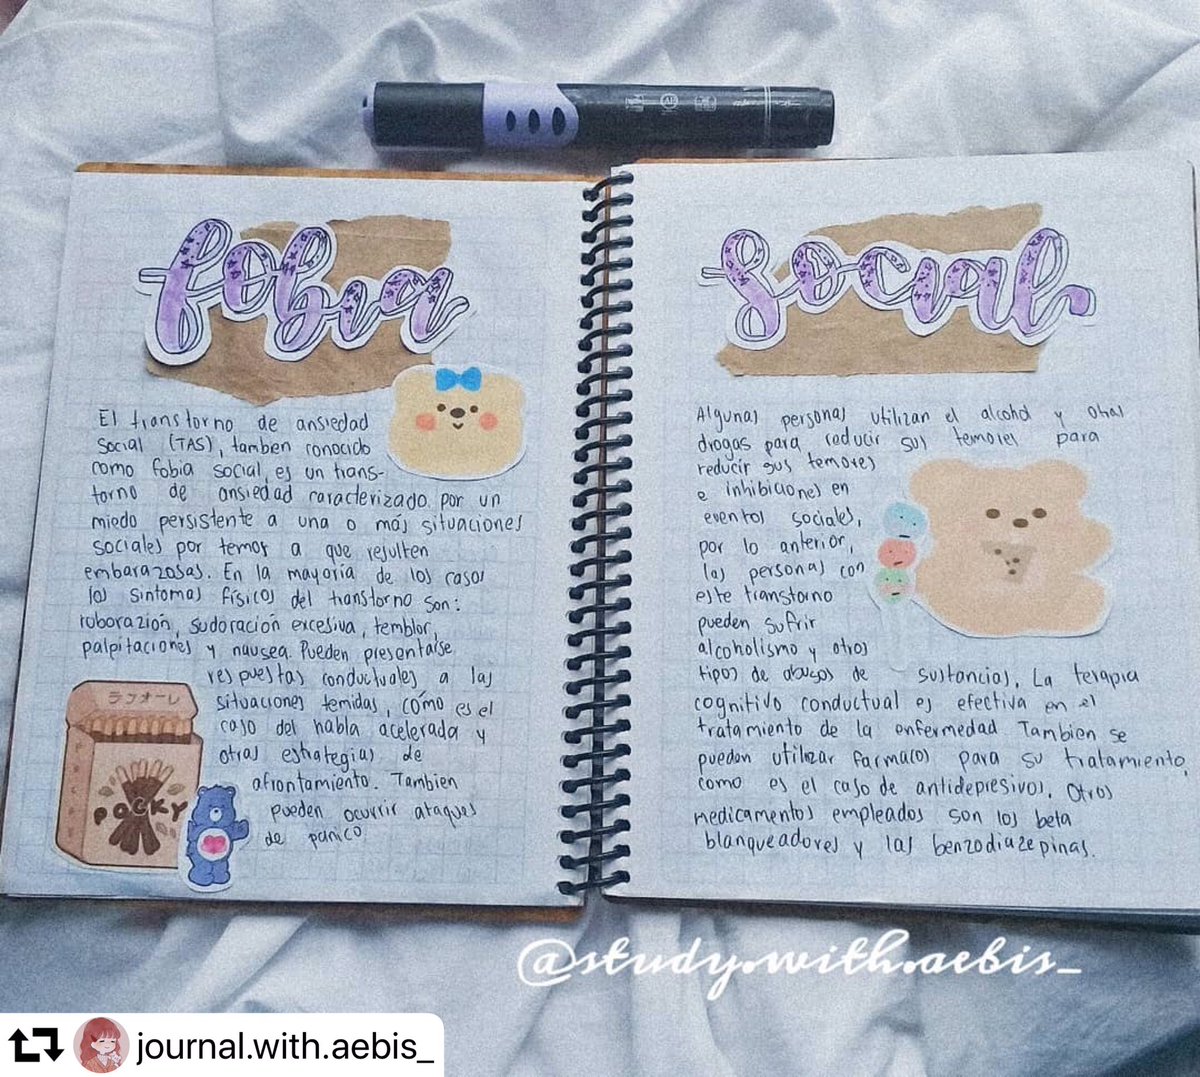 fobia
El transtorno de ansiedad
social (TAS), tamben conocido
como fobia social, es un trans-
torno de ansiedad caracterizado por un
miedo persistente a una o más situaciones
sociales por temor a que resulten
embarazosas. En la mayoría de los casos
los sintomas físicos del transtorno son:
roborazión, sudoración excesiva, temblor,
palpitaciones y nausea. Pueden presentarse
respuestas conductuales a las
situaciones temidas, cómo es el
caso del habla acelerada y
otras estrategias de
afrontamiento. Tambien
pueden ocurrir ataques
de panico
ラフォーレ
POCKY
social
Algunas personas utilizan el alcohol y otras
drogas para reducir sus temores para
reducir sus temores
e inhibiciones en
eventos sociales,
por lo anterior,
las personas con
este transtorno
pueden sufrir
alcoholismo y otros
tipos de abusos de sustancias. La terapia
cognitivo conductual es efectiva en el
tratamiento de la enfermedad Tambien se
pueden utilizar farmacos para su tratamiento,
como es el caso de antidepresivos. Otros
medicamentos empleados son los beta
blanqueadores y las benzodiazepinas.
@study.with.aebis_
journal.with.aebis_